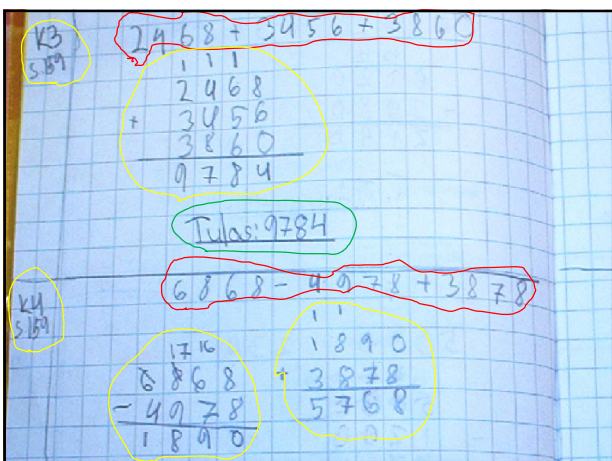 K3
s.159
2468 + 3456 + 3860
1 1 1
2468
+ 3456
3860
9784
Tulos: 9784
K4
s.159
6868 - 4978 + 3878
17 16
6868
- 4978
1890
1 1
1890
+ 3878
5768